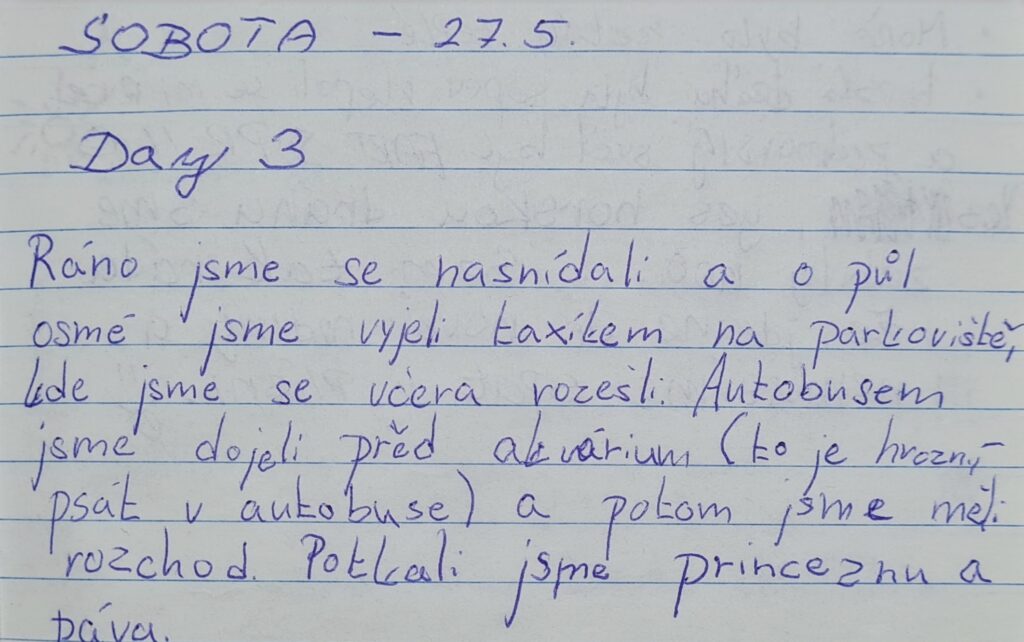 SOBOTA - 27.5.
Day 3
Ráno jsme se nasnídali a o půl
osmé jsme vyjeli taxíkem na parkoviště,
kde jsme se včera rozešli. Autobusem
jsme dojeli před akvárium (to je hrozný
psát v autobuse) a potom jsme měli
rozchod. Potkali jsme princeznu a
páva.